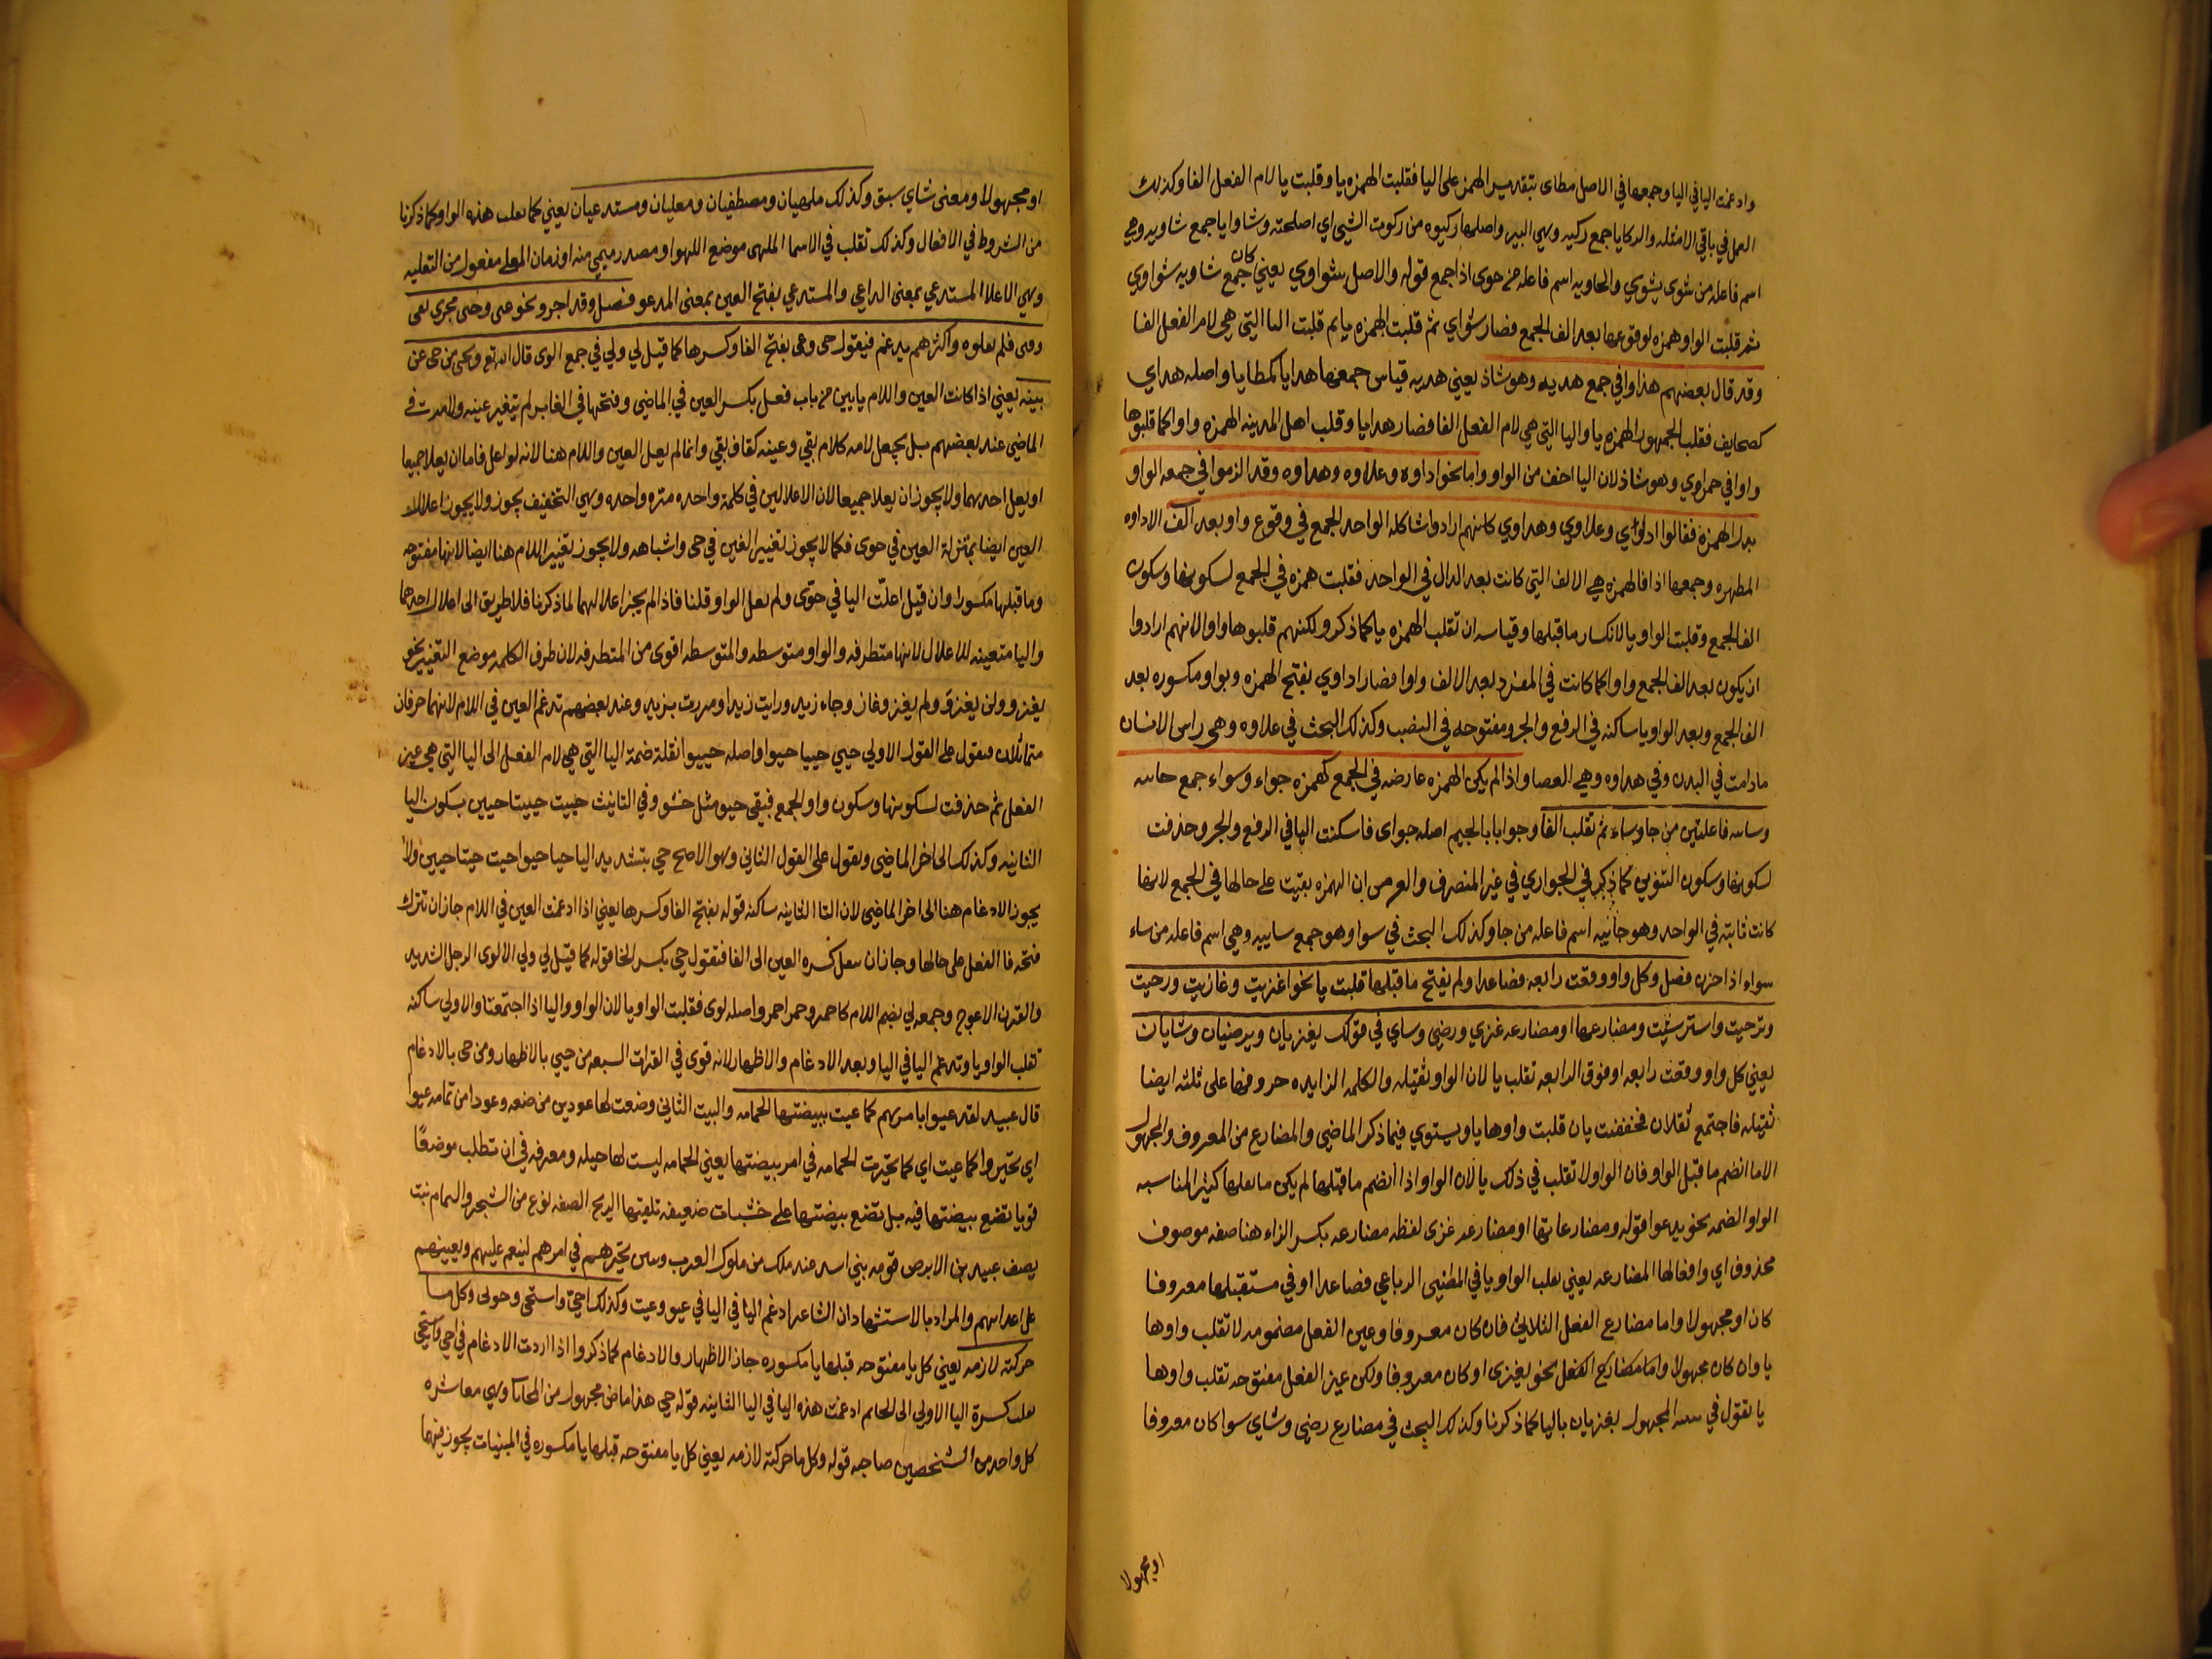 وادغمت اليا في اليا وجمعها في الاصل مطاى بتقدير الهمز على اليا فقلبت الهمزه يا وقلبت يا لام الفعل الفا وكذلك
العمل في باقي الامثله والركايا جمع ركيه وهي البير واصلها ركيوه من ركوت الشيى اي اصلحته وشاوايا جمع شاويه وهي
اسم فاعله من شوى يشوي والحاويه اسم فاعله من حوى اذا جمع قوله والاصل شواوي يعني كان جمع شاويه شواوي
ثم قلبت الواو همزه لوقوعها بعد الف الجمع فصار شوااي ثم قلبت الهمزه يا ثم قلبت اليا التي هي لام الفعل الفا
وقد قال بعضهم هذاوا في جمع هديه وهو شاذ يعني هديه قياس جمعها هدايا كمطايا واصله هداي
كصحايف فقلب الجمهور الهمزه يا واليا التي هي لام الفعل الفا فصار هدايا وقلب اهل المدينه الهمزه واوا كما قلبوها
واوا في حمراوي وهو شاذ لان اليا اخف من الواو واما نحو اداوه وعلاوه وهداوه وقد الزموا في جمعه الواو
بدل الهمزه فقالوا اداوي وعلاوي وهداوي كانهم ارادوا مشاكله الواحد الجمع في وقوع واو بعد الف الاداوه
المطهره وجمعها اذا فالهمزه هي الالف التي كانت بعد الدال في الواحد فقلبت همزه في الجمع لسكونها وسكون
الف الجمع وقلبت الواو يا لانكسار ما قبلها وقياسه ان تقلب الهمزه يا كما ذكر ولكنهم قلبوها واوا لانهم ارادوا
ان يكون بعد الف الجمع واوا كما كانت في المفرد بعد الالف واوا فصار اداوي بفتح الهمزه وبواو مكسوره بعد
الف الجمع وبعد الواو يا ساكنه في الرفع والجر ومفتوحه في النصب وكذلك البحث في علاوه وهي راس الانسان
مادامت في البدن وفي هداوه وهي العصا واذا لم يكن الهمزه عارضه في الجمع كهمزه جواء وسواء جمع جاىىه
وساىىه فاعلتين من جا وساء ثم تقلب الفا وجوابا بالجيم اصله جواى فاسكنت اليا في الرفع والجر وحذفت
لسكونها وسكون التنوين كما ذكر في الجواري في غير المنصرف والغرض ان الهمزه بقيت على حالها في الجمع لانها
كانت ثابته في الواحد وهو جائيه اسم فاعله من جا وكذلك البحث في سوا وهو جمع ساييه وهي اسم فاعله من ساء
سواء اذا حزن فصل وكل واو وقعت رابعه فصاعدا ولم يفتح ما قبلها قلبت يا نحو اغزيت وغازيت ورجيت
وترجيت واسترشيت ومضارعها او مضارعه غزي ورضي وساي في قولك يغزيان ويرضيان وشايان
يعني كل واو وقعت رابعه او فوق الرابعه تقلب يا لان الواو ثقيله والكلمه الزايده حروفها على ثلثه ايضا
ثقيله فاجتمع ثقلان فخففت بان قلبت واوها يا ويستوي فيما ذكر الماضي والمضارع من المعروف والمجهول
الا ما انضم ما قبل الواو فان الواو لا تقلب في ذلك يا لان الواو اذا انضم ما قبلها لم يكن ما نعلها كثير المناسبه
الواو الضمه نحو يدعوا قوله ومضارعاتها او مضارعه غزى لفظه مضارعه بكسر الزاء هنا صفه موصوف
محذوف اي وافعالها المضارعه يعني تقلب الواو يا في الماضي الرباعي فصاعدا او في مستقبلها معروفا
كان او مجهولا واما مضارع الفعل الثلاثي فان كان معروفا وعين الفعل مضمومه لا تقلب واوها
يا وان كان مجهولا واما مضارع الفعل نحو يغزى او كان معروفا ولكن عين الفعل مفتوحه تقلب واوها
يا تقول في المجهول يغزيان باليا كما ذكرنا وكذلك البحث في مضارع رضي وشاي سوا كان معروفا
او مجهولا
او مجهولا ومعنى شاي سبق وكذلك ملهيان ومصطفيان ومعليان ومستدعيان يعني كما تقلب هذه الواو كما ذكرنا
من الشروط في الافعال وكذلك تقلب في الاسما الملهى موضع اللهو او مصدر ميمي منه او زمان المعلى مفعول من التعليه
وهي الاعلا المستدعي بمعنى الداعي والمستدعي بفتح العين بمعنى المدعو فصل وقد اجرو نحو عى وحى مجرى بقى
وفى فلم يعلوه واكثرهم يدغم فيقول حى وعى بفتح الفا وكسرها كما قيل لي ولي في جمع الوى قال الله تع ويحى من حى عن
بينه يعني اذا كانت العين واللام يايين من باب فعل بكسر العين في الماضي وفتحها في الغابر لم يتغير عينه ولامه في
الماضي عند بعضهم بل يجعل لامه كلام بقي وعينه كقاف بقي وانما لم يعل العين واللام هنا لانه لو اعل فاما ان يعلا جميعا
او يعل احدهما ولا يجوز ان يعلا جميعا لان الاعلالين في كلمة واحده متره واحده وهي التخفيف يجوز ولا يجوز اعلال
العين ايضا بمنزلة العين في حوى فكما لا يجوز تغيير العين في حى واشباهه ولا يجوز تغيير اللام هنا ايضا لانها مفتوحه
وما قبلها مكسورا وان قيل اعلّت اليا في حوّى ولم يعل الواو قلنا فاذا لم يجز اعلالهما لما ذكرنا فلا طريق الى اعلال احدهما
واليا متعينه للاعلال لانها متطرفه والواو متوسطه والمتوسطه اقوى من المتطرفه لان طرف الكلمه موضع التغيير نحو
يغزو ولن يغزو ولم يغز وغاز وجاء زيد ورايت زيدا ومررت بزيد وعند بعضهم تدغم العين في اللام لانهما حرفان
متماثلان فتقول على القول الاولي حيي حييا حيوا واصله حييوا نقلة ضمة اليا التي هي لام الفعل الى اليا التي هي عين
الفعل ثم حذفت لسكونها وسكون واو الجمع فبقي حيو مثل خشو وفي التانيث حييت حييتا حيين بسكون اليا
الثانيه وكذلك الى اخر الماضي وتقول على القول الثاني وهو الاصح حي بتشديد اليا حيا حيوا حيت حيتا حيين ولا
يجوز الادغام هنا الى اخر الماضي لان التا الثانيه ساكنه قوله بفتح الفا وكسرها يعني اذا ادغمت العين في اللام جاز ان تترك
فتحه فا الفعل على حالها وجاز ان تنقل كسره العين الى الفا فتقول حي بكسر الحا قوله كما قيل لي ولي الالوى الرجل الشديد
والقرن الاعوج وجمعه لي بضم اللام كاحمر وحمر احمر واصله لوى فقلبت الواو يا لان الواو واليا اذا اجتمعتا والاولي ساكنه
تقلب الواو يا وتدغم اليا في اليا وبعد الادغام والاظهار لانه قوى في القرات السبعه من حيي بالاظهار ومن حى بالادغام
قال عبيد لقد عيوا بامرهم كما عيت ببيضتها الحمامه والبيت الثاني وضعت لها عودين من ضعه وعودا من ثمامه عيوا
اي تحيروا كما عيت اي كما تحيرت الحمامه في امر بيضتها يعني الحمامه ليست لها حيله ومعرفه في ان تطلب موضعًا
قويا تضع بيضتها فيه بل تضع بيضتها على خشبات ضعيفه تلقيها الريح الصفه نوع من الشجر والثمام نبت
يصف عبيد بن الابرص قومه بني اسد عند ملك من ملوك العرب وبين تحيرهم في امرهم لينعم عليهم ويعينهم
على اعدائهم والمراد بالاستشهاد ان الشاعر ادغم اليا في اليا في عيو وعيت وكذلك احيّ واستحى وحولى وكل ما
حركته لازمه يعني كل يا مفتوحه قبلها يا مكسوره جاز الاظهار والادغام كما ذكروا اذا اردت الادغام في احي واستحي
نقلت كسرة اليا الاولي الى الحا ثم ادغمت هذه اليا في اليا الثانيه قوله حي هذا ماض مجهول من المحاياة وهي معاشره
كل واحد من الشخصين صاحبه قوله وكل ما حركته لازمه يعني كل يا مفتوحه قبلها يا مكسوره في المبنيات يجوز فيها